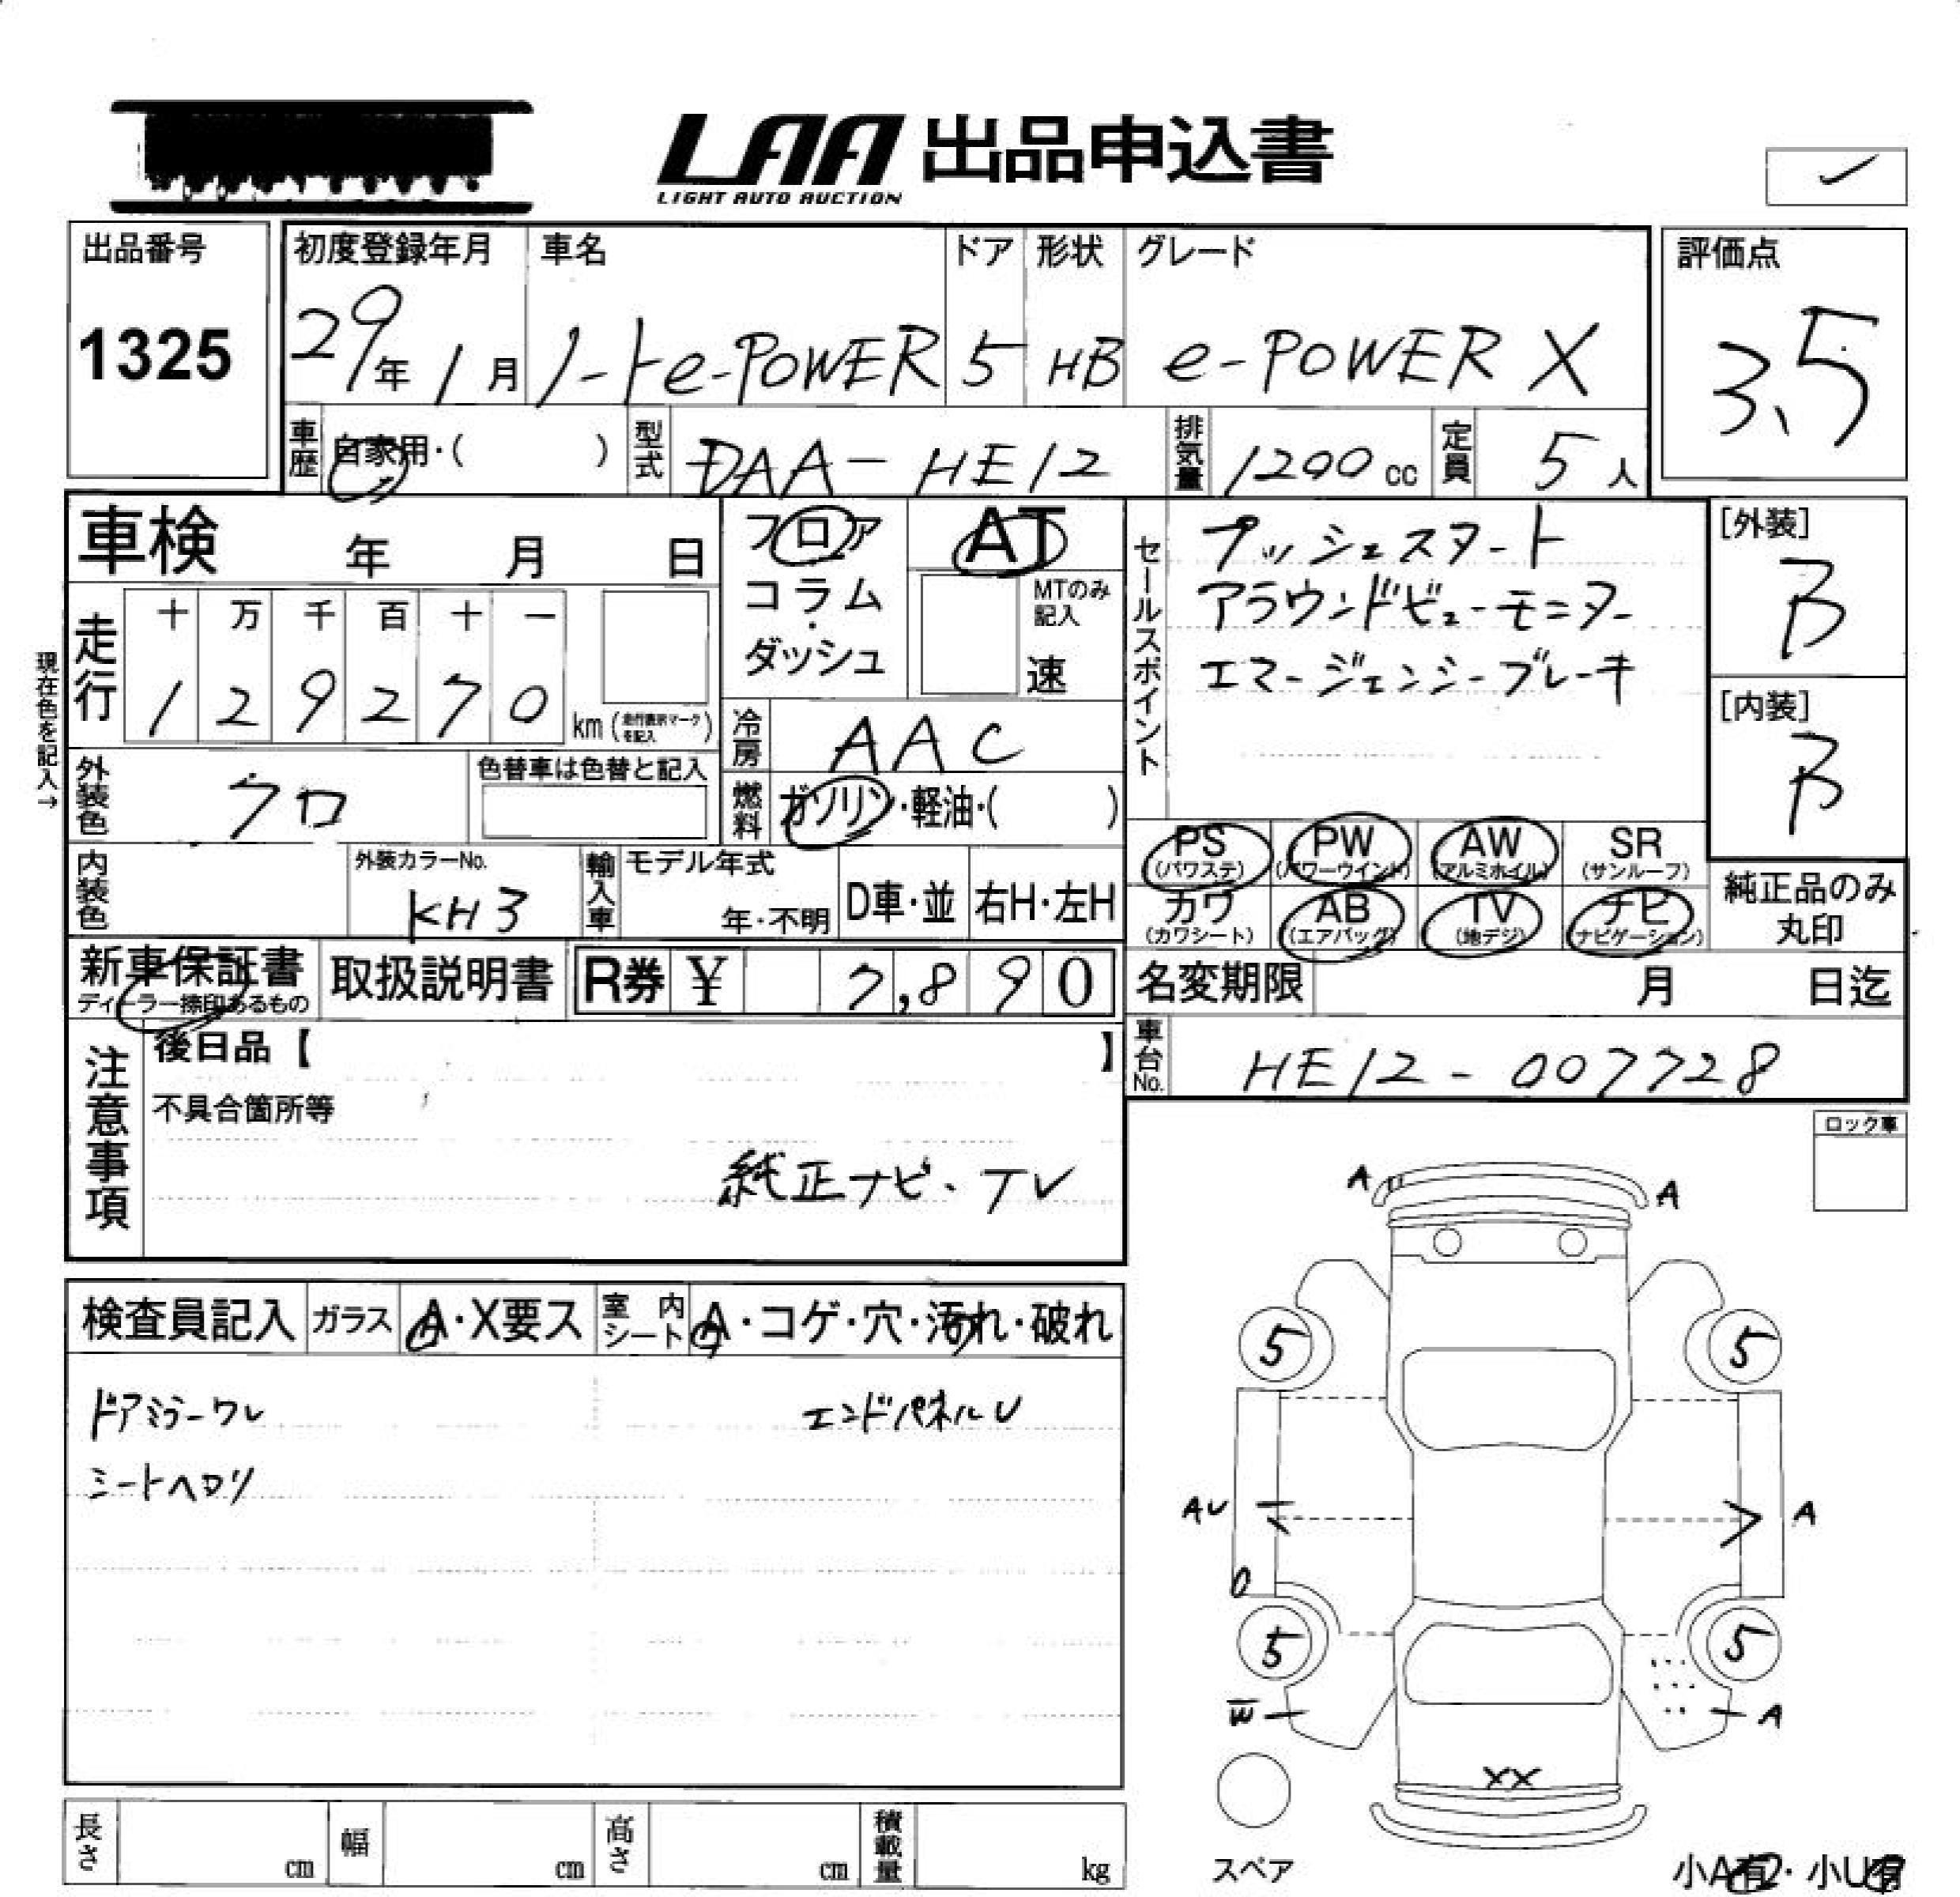 LAA 出品申込書
LIGHT AUTO AUCTION
出品番号
1325
初度登録年月
29年1月
車名
ノートe-POWER
ドア
5
形状
HB
グレード
e-POWER X
評価点
3.5
車歴
自家用・( )
型式
DAA-HE12
排気量
1200cc
定員
5人
車検 年 月 日
フロア
コラム
・
ダッシュ
AT
MTのみ
記入
速
セールスポイント
プッシュスタート
アラウンドビューモニター
エマージェンシーブレーキ
[外装]
B
[内装]
B
現在色を記入→
走行
十 万 千 百 十 一
1 2 9 2 7 0
km (走行表示マークを記入)
冷房
AAC
外装色
クロ
色替車は色替と記入
燃料
ガソリン・軽油・( )
PS
(パワステ)
PW
(パワーウインド)
AW
(アルミホイル)
SR
(サンルーフ)
カワ
(カワシート)
AB
(エアバッグ)
TV
(地デジ)
ナビ
(ナビゲーション)
純正品のみ
丸印
内装色
外装カラーNo.
KH3
輸入車
モデル年式
年・不明
D車・並
右H・左H
新車保証書
ディーラー捺印あるもの
取扱説明書
R券 ¥ 7,890
名変期限 月 日迄
車台No.
HE12-007728
注意事項
後日品【 】
不具合箇所等
純正ナビ・TV
ロック車
検査員記入
ガラス
A・X要ス
室内シート
A・コゲ・穴・汚れ・破れ
ドアミラーワレ
エンドパネルU
シートヘタリ
A A
5 5
AU A
5 5
W A
XX
スペア
長さ cm
幅 cm
高さ cm
積載量 kg
小A有・小U有